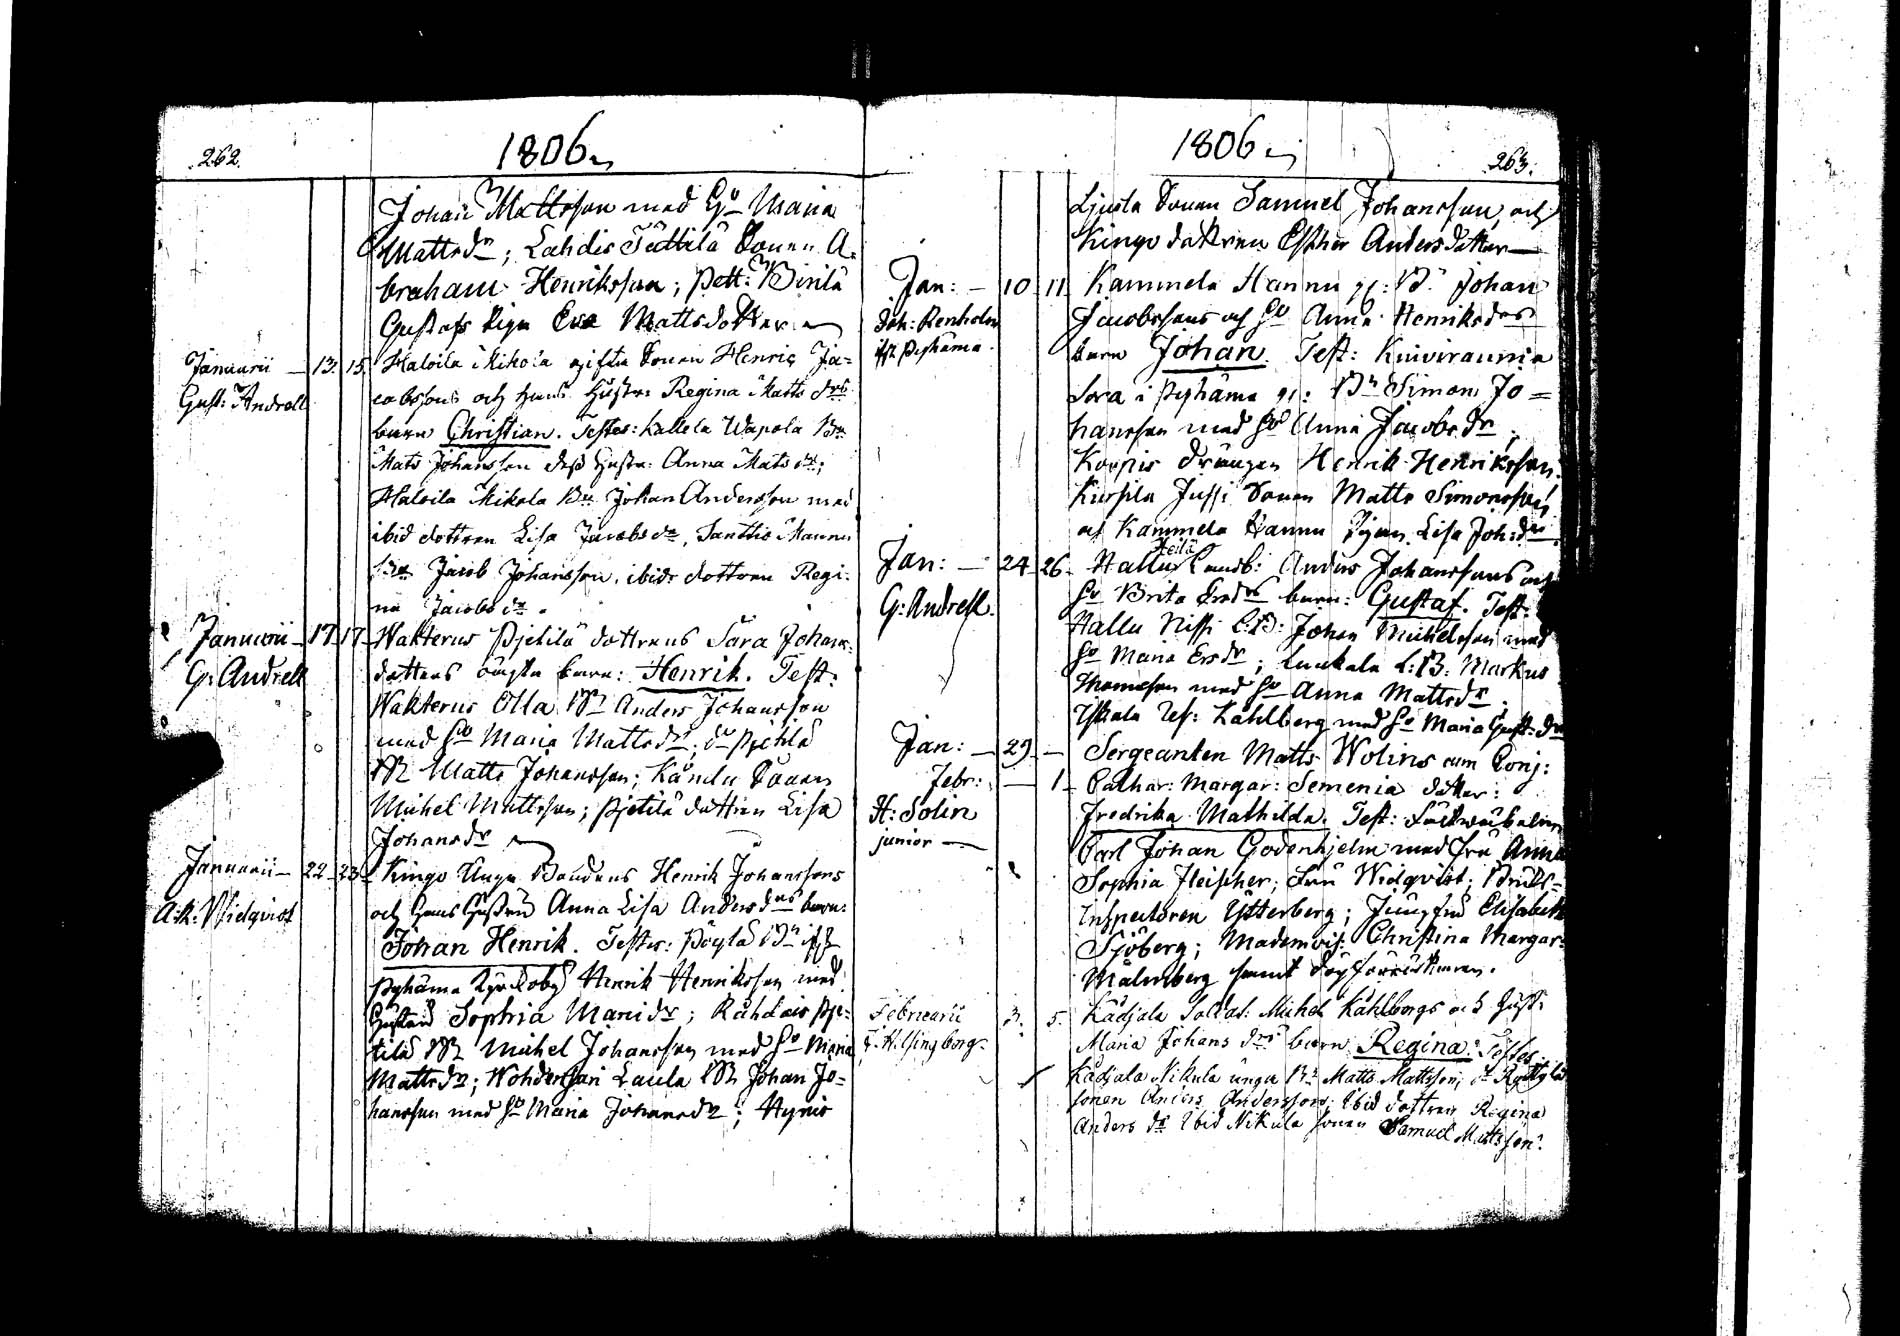 262.
1806
Johan Mattsson med H:o Maria
Mattsdr; Lahdis Tättilä Sonen A-
braham Henriksson; Pett: Birilä
Gustafs Pign Eva Mattsdotter
Januarii — 13. 15. Haloila Mikola gifta Sonen Henric Ja=
Gust: Andrell
cobssons och hans Hustru Regina Matts drs
barn Christian. Testes: Kallela Wapola Bn
Mats Johansson dess Hustru Anna Mats dr;
Haloila Mikola Bn Johan Andersson med
ibid dottren Lisa Jacobs dr, Santtio Mannu
Bn Jacob Johansson, ibid: dottren Regi-
na Jacobs dr.
Januarii — 17 17 Wakterus Pjetilä dottrens Sara Johans-
G: Andrell
dotters oägta barn: Henrik. Test:
Wakterus Olla Bn Anders Johansson
med H:o Maria Mattsdr; d:o Pjetilä
Bn Matts Johansson; Kändu Sonen
Michel Mattsson; Pjetilä dottren Lisa
Johansdr
Januarii — 22 — 23 Kingo Unga Bondens Henrik Johanssons
A: R: Widqvist
och Hans Hustru Anna Lisa Andersdrs barn:
Johan Henrik. Testes: Pöylä Bn ifr
Pyhäma Kyrckoby Henrik Henriksson med
Hustru Sophia Maridr; Rähdais Pje-
tilä Bn Michel Johansson med H:o Maria
Mattsdr; Wohdensari Laula Bn Johan Jo=
hansson med H:o Maria Johansdr; Hynis
1806
263.
Ljusta Sonen Samuel Johansson, och
Kingo dottren Esther Andersdotter —
Jan: — 10 11 Kammela Hannu gl: B: Johan
Joh: Renholm
ifr Pyhäma.
Jacobssons och H:o Anna Henriksdrs
barn Johan. Test: Kuivirauma
Sora i Pyhäma gl: Bn Simon Jo =
hansson med H:o Anna Jacobs dr;
Korpis drängen Henrik Henriksson.
Kursila Jussi Sonen Matts Simonsson,
och Kammela Hannu Pigan Lisa Joh:dr.
Jan: — 24 26 Hallu Heilä Landb: Anders Johanssons och
G: Andrell.
H:o Brita Ersdrs barn: Gustaf. Test:
Hallu Nissi L:B: Johan Michelsson med
H:o Maria Ersdr; Kaukala L:B: Markus
Thomsson med H:o Anna Mattsdr;
Iskala Ref: Kahlberg med H:o Maria Gust:dr
Jan: — 29 — Sergeanten Matts Wolins cum Conj:
Febr: — 1 Cathar: Margar: Semenia dotter:
H: Solin
junior —
Fredrika Mathilda. Test:
Carl Johan Godenhjelm med Fru Anna
Sophia Fleischer; Fru Widqvist; Bruks-
Inspectoren Ytterberg; Jungfru Elisabeth
Sjöberg; Mademois: Christina Margar:
Malmberg samt
Februarii 3. 5. Kädjala Soldat: Michel Kahlbergs och Hust:
F: Helsingberg.
Maria Johans drs barn Regina. Testes:
Kädjala Nikula unga Bn Matts Mattsson; d:o
sonen Anders Andersson; Ibid dottren Regina
Anders dr Ibid Nikula sonen Samuel Mattsson.